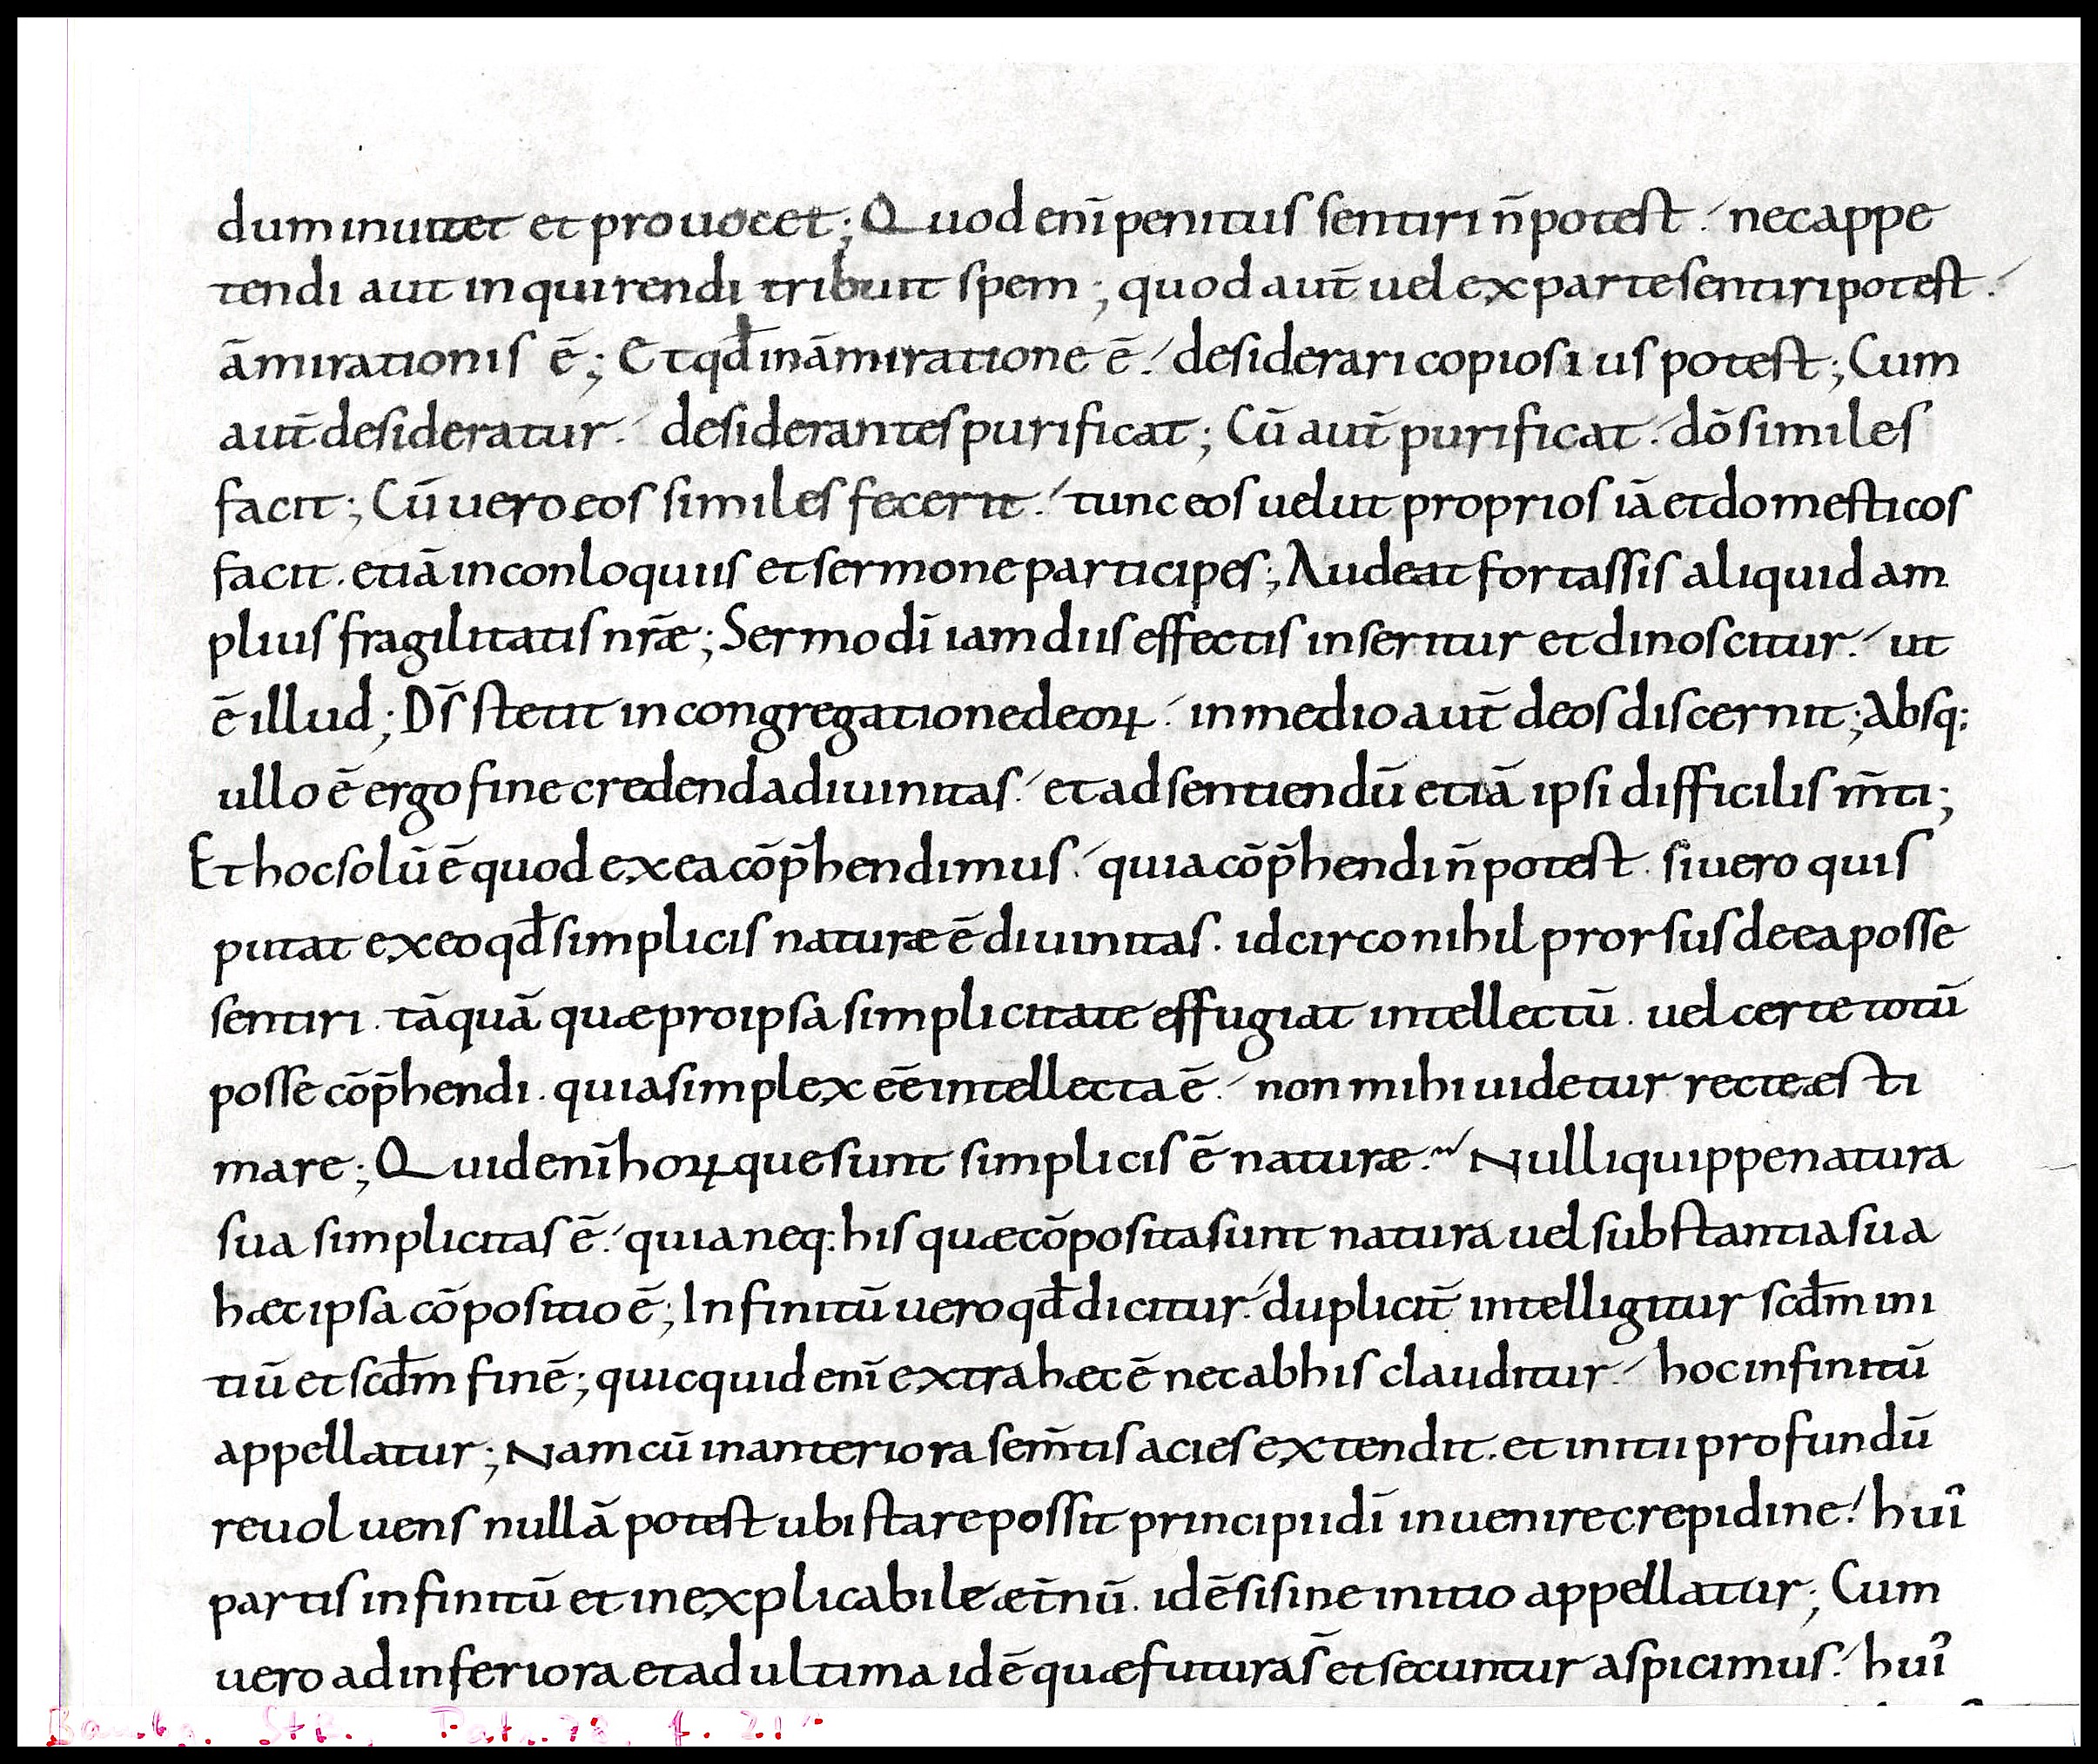 dum inuitet et prouocet; Quod enī penitus sentiri n̄ potest. nec appe
tendi aut inquirendi tribuit spem; quod aut̄ uel ex parte sentiri potest.
ām̄irationis ē; Et qđ in āmiratione ē. desiderari copiosius potest; Cum
aut̄ desideratur. desiderantes purificat; Cū aut̄ purificat. dō similes
facit; Cū uero eos similes fecerit. tunc eos uelut proprios iā et domesticos
facit. etiā in conloquiis et sermone participes; Audeat fortassis aliquid am
plius fragilitatis nr̄æ; Sermo dī iam diis effectis inseritur et dinoscitur. ut
ē illud; Dſ̄ stetit in congregatione deoꝝ. in medio aut̄ deos discernit; Absq;
ullo ē ergo fine credenda diuinitas. et ad sentiendū etiā ipsi difficilis m̄ti;
Et hoc solū ē quod ex ea cōp̄hendimus. quia cōp̄hendi n̄ potest. si uero quis
putat ex eo qđ simplicis naturæ ē diuinitas. idcirco nihil prorsus de ea posse
sentiri. tāquā quæ pro ipsa simplicitate effugiat intellectū. uel certe totū
posse cōp̄hendi. quia simplex eē intellecta ē. non mihi uidetur recte æsti
mare; Quid enī hoꝝ que sunt simplicis ē naturæ. Nulli quippe natura
sua simplicitas ē. quia neq; his quæ cōposita sunt natura uel substantia sua
hæc ipsa cōpositio ē; Infinitū uero qđ dicitur. duplicit̄ intelligitur scđm ini
tiū et scđm finē; quicquid enī extra hæc ē nec ab his clauditur. hoc infinitū
appellatur; Nam cū in anteriora se m̄tis acies extendit. et initii profundū
reuoluens nullā potest ubi stare possit principii dī inuenire crepidine. huī
partis infinitū et inexplicabile æt̄nū. id ē si sine initio appellatur; Cum
uero ad inferiora et ad ultima id ē quæ futura s̄ et secuntur aspicimus. huī